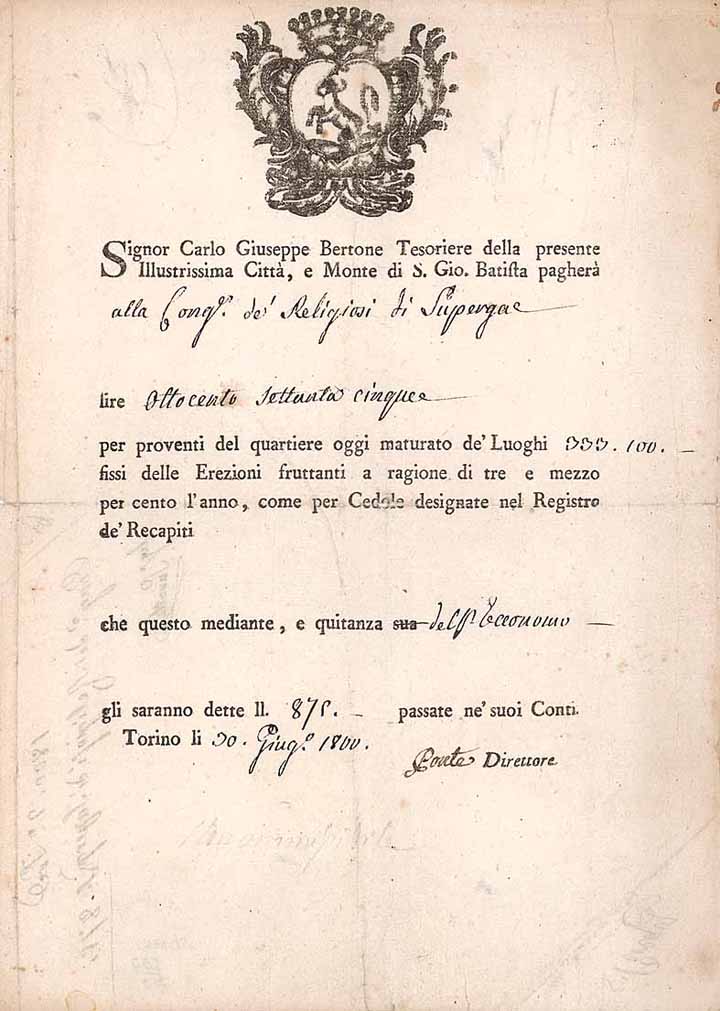 Signor Carlo Giuseppe Bertone Tesoriere della presente
Illustrissima Città, e Monte di S. Gio. Batista pagherà
alla Cong.e de' Religiosi di Supergae
lire Ottocento settanta cinque
per proventi del quartiere oggi maturato de' Luoghi 333. 100. –
fissi delle Erezioni fruttanti a ragione di tre e mezzo
per cento l'anno, come per Cedole designate nel Registro
de' Recapiti
che questo mediante, e quitanza sua dell' Economo –
gli saranno dette ll. 875. – passate ne' suoi Conti.
Torino li 30. Giug.o 1800.
Ponte Direttore